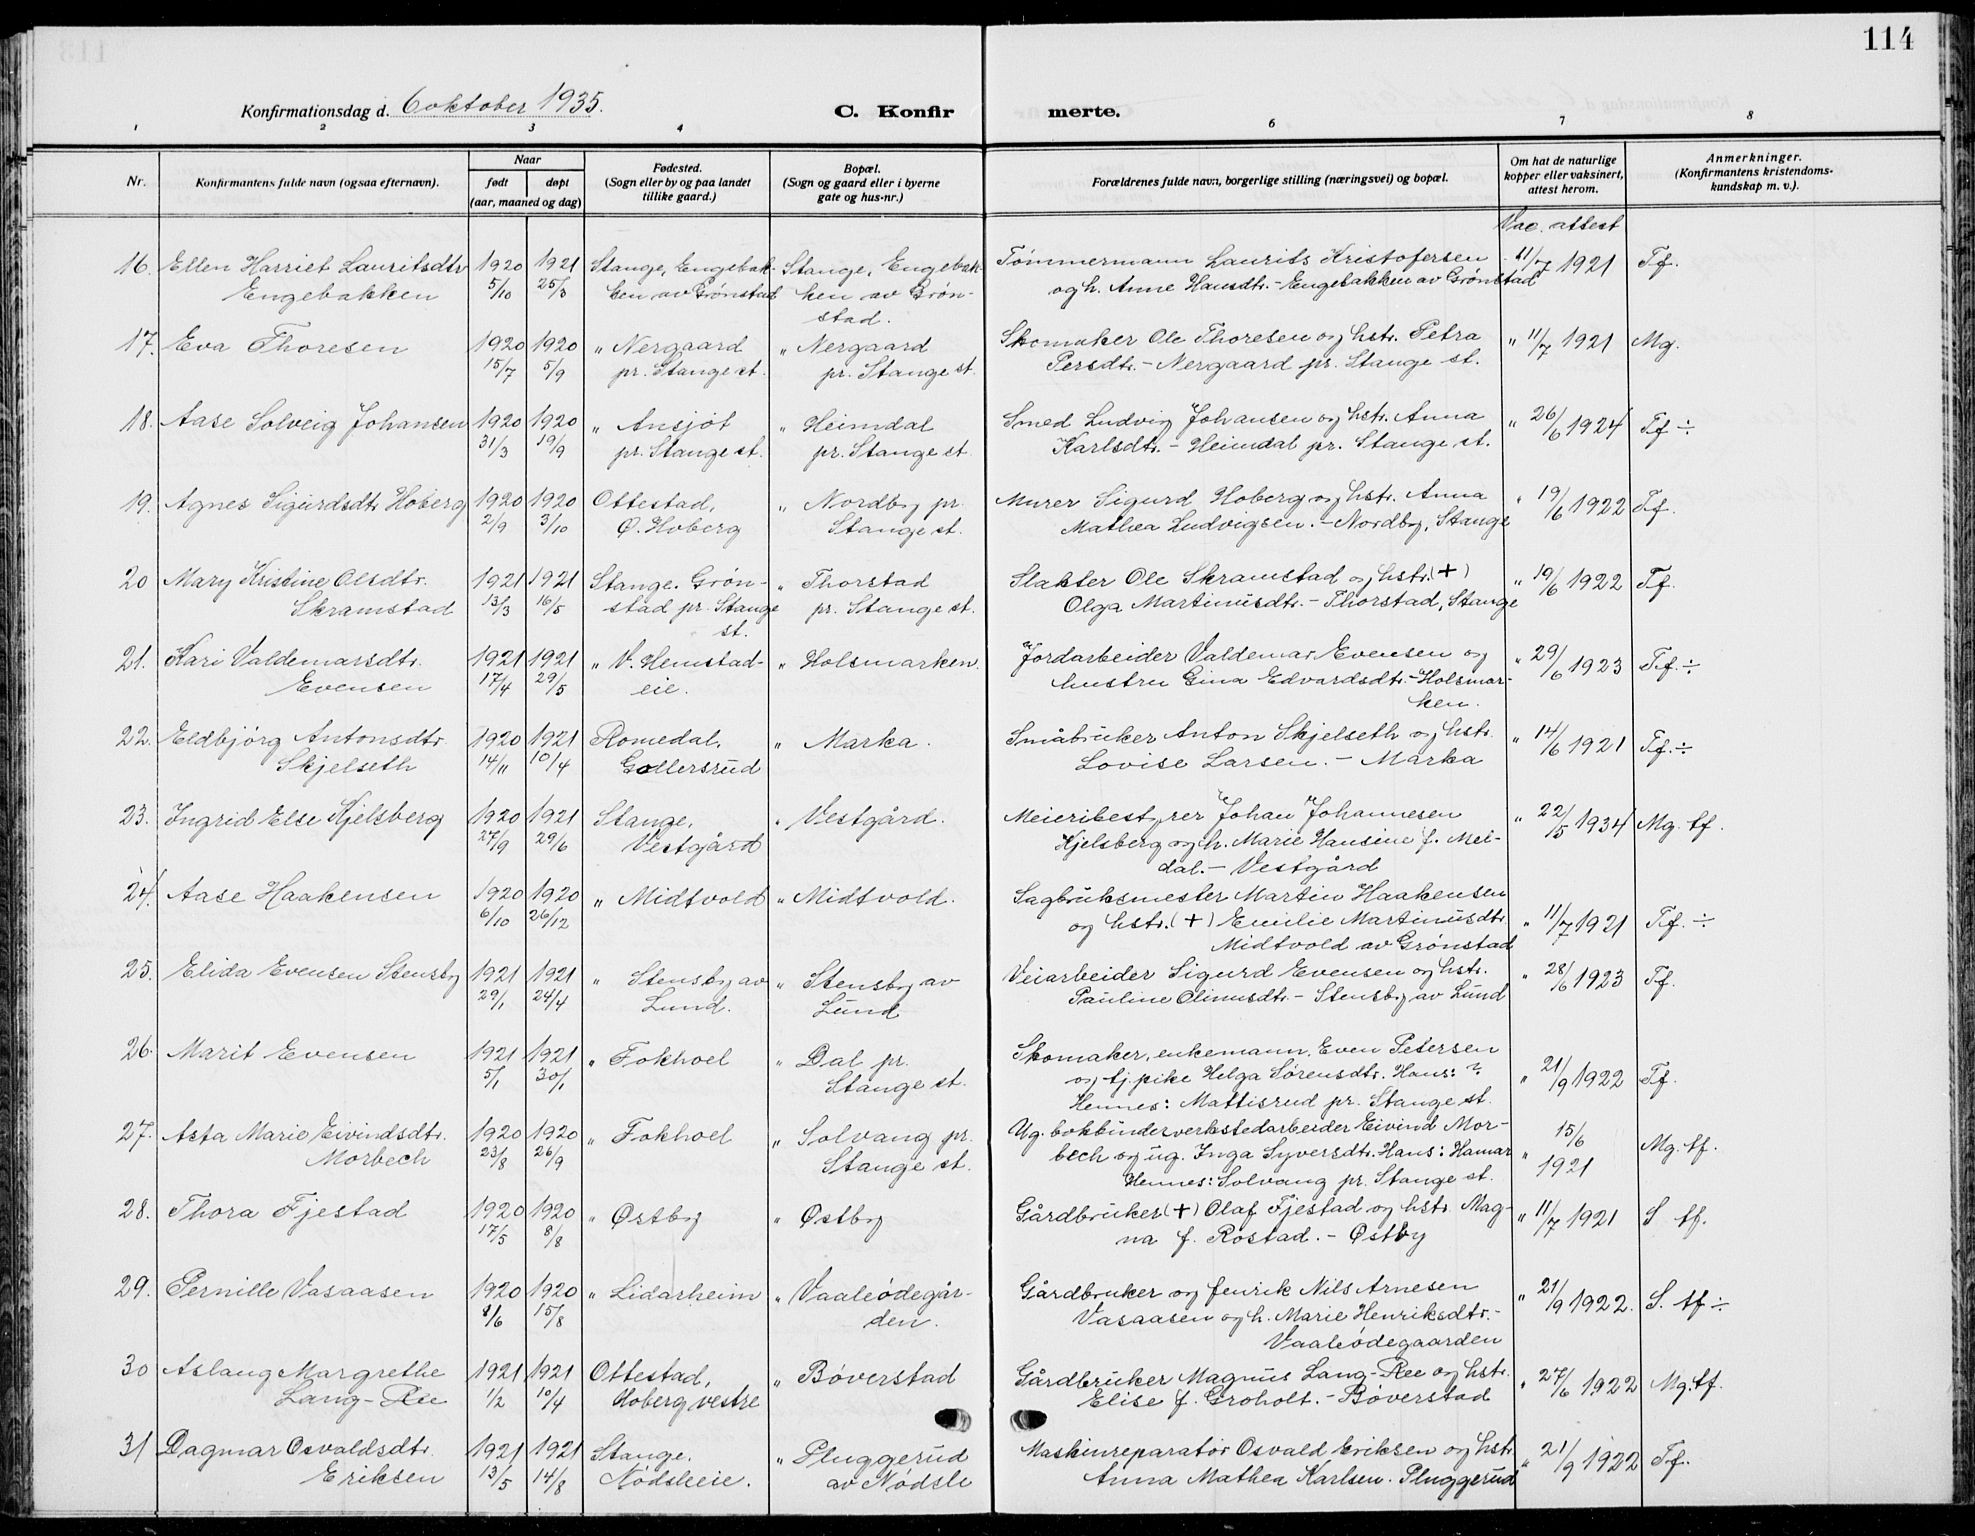 114
Konfirmationsdag d. 6 oktober 1935.
C. Konfir merte.
1 2 3 4 5 6 7 8
Nr.
Konfirmantens fulde navn (ogsaa efternavn).
Naar
født døpt
(aar, maaned og dag)
Fødested.
(Sogn eller by og paa landet
tillike gaard.)
Bopæl.
(Sogn og gaard eller i byerne
gate og hus-nr.)
Forældrenes fulde navn, borgerlige stilling (næringsvei) og bopæl.
Om hat de naturlige
kopper eller vaksinert,
attest herom.
Anmerkninger.
(Konfirmantens kristendoms-
kundskap m. v.).
Vac. attest
16. Ellen Harriet Lauritsdtr 1920 1921 Stange, Engebak- Stange, Engebak- Tømmermann Laurits Kristofersen 11/7 1921 Tf.
Engebakken 5/10 25/3 ken av Grønstad ken av Grøn- og h. Anne Hansdtr. - Engebakken av Grønstad
stad.
17. Eva Thoresen 1920 1920 " Nergaard " Nergaard Skomaker Ole Thoresen og hstr. Petra " 11/7 1921 Mg.
15/7 5/9 pr. Stange st. pr. Stange st. Persdtr. - Nergaard pr. Stange st.
18. Aase Solveig Johansen 1920 1920 " Ansjøt " Heimdal Smed Ludvig Johansen og hstr. Anna " 26/6 1924 Tf ÷
31/3 19/9 pr. Stange st. pr. Stange st Karlsdtr. - Heimdal pr. Stange st.
19. Agnes Sigurdsdtr Hoberg 1920 1920 Ottestad, " Nordby pr. Murer Sigurd Hoberg og hstr. Anna " 19/6 1922 Tf.
2/9 3/10 Ø. Hoberg Stange st. Mathea Ludvigsen. - Nordby, Stange
20 Mary Kristine Olsdtr. 1921 1921 Stange. Grøn- " Thorstad Slakter Ole Skramstad og hstr. (+) " 19/6 1922 Tf.
Skramstad 13/3 16/5 stad pr. Stange pr. Stange st. Olga Martinusdtr. - Thorstad, Stange
st.
21. Kari Valdemarsdtr. 1921 1921 " V. Hemstad- " Holsmarken. Jordarbeider Valdemar Evensen og " 29/6 1923 Tf. ÷
Evensen 17/4 29/5 eie. hustru Gina Edvardsdtr. - Holsmar-
ken.
22. Eldbjörg Antonsdtr. 1920 1921 Romedal, " Marka. Småbruker Anton Skjelseth og hstr. " 14/6 1921 Tf. ÷
Skjelseth 14/11 10/4 Gollersrud Lovise Larsen. - Marka
23. Ingrid Else Kjelsberg 1920 1921 Stange, " Vestgård. Meieribestyrer Johan Johannesen " 22/5 1934 Mg. tf.
27/9 29/6 Vestgård Kjelsberg og h. Marie Hansine f. Mei-
dal. - Vestgård
24. Aase Haakensen 1920 1920 " Midtvold " Midtvold. Sagbruksmester Martin Haakensen
6/10 26/12 og hstr. (+) Emilie Martinusdtr. " 11/7 1921 Tf. ÷
Midtvold av Grønstad
25. Elida Evensen Stensby 1921 1921 " Stensby av " Stensby av Veiarbeider Sigurd Evensen og hstr. " 28/6 1923 Tf.
29/1 24/4 Lund. Lund Pauline Olinusdtr. - Stensby av Lund
26. Marit Evensen 1921 1921 " Fokhoel " Dal pr. Skomaker, enkemann, Even Petersen
5/1 30/1 Stange st. og tj.pike Helga Sørensdtr. Hans: ? " 21/9 1922 Tf.
Hennes: Mattisrud pr. Stange st.
27. Asta Marie Eivindsdtr. 1920 1920 " Fokhoel " Solvang pr. Ug. bokbinderverkstedarbeider Eivind Mor- 15/6
Morbech 23/8 26/9 Stange st. bech og ug. Inga Syversdtr. Hans: Hamar " 1921 Mg. tf.
Hennes: Solvang pr. Stange st.
28. Thora Fjestad 1920 1920 " Østby " Østby Gårdbruker (+) Olaf Fjestad og hstr. Mag- " 11/7 1921 S tf.
17/5 8/8 na f. Rostad. - Østby
29. Pernille Vasaasen 1920 1920 " Lidarheim " Vaaleödegår- Gårdbruker og fenrik Nils Arnesen " 21/9 1922. S. tf ÷
/6 15/8 den. Vasaasen og h. Marie Henriksdtr. -
Vaaleödegaarden
30 Aslaug Margrethe 1921 1921 Ottestad, " Bøverstad Gårdbruker Magnus Lang-Ree og hstr. " 27/6 1922 Mg. tf.
Lang-Ree 1/2 10/4 Hoberg vestre Elise f. Groholt. - Bøverstad
31 Dagmar Osvaldsdtr. 1921 1921 Stange. " Pluggerud Maskinreparatør Osvald Eriksen og hstr. " 21/9 1922 Tf.
Eriksen 13/5 14/8 Nødsleeie. av Nødsle Anna Mathea Karlsen. Pluggerud